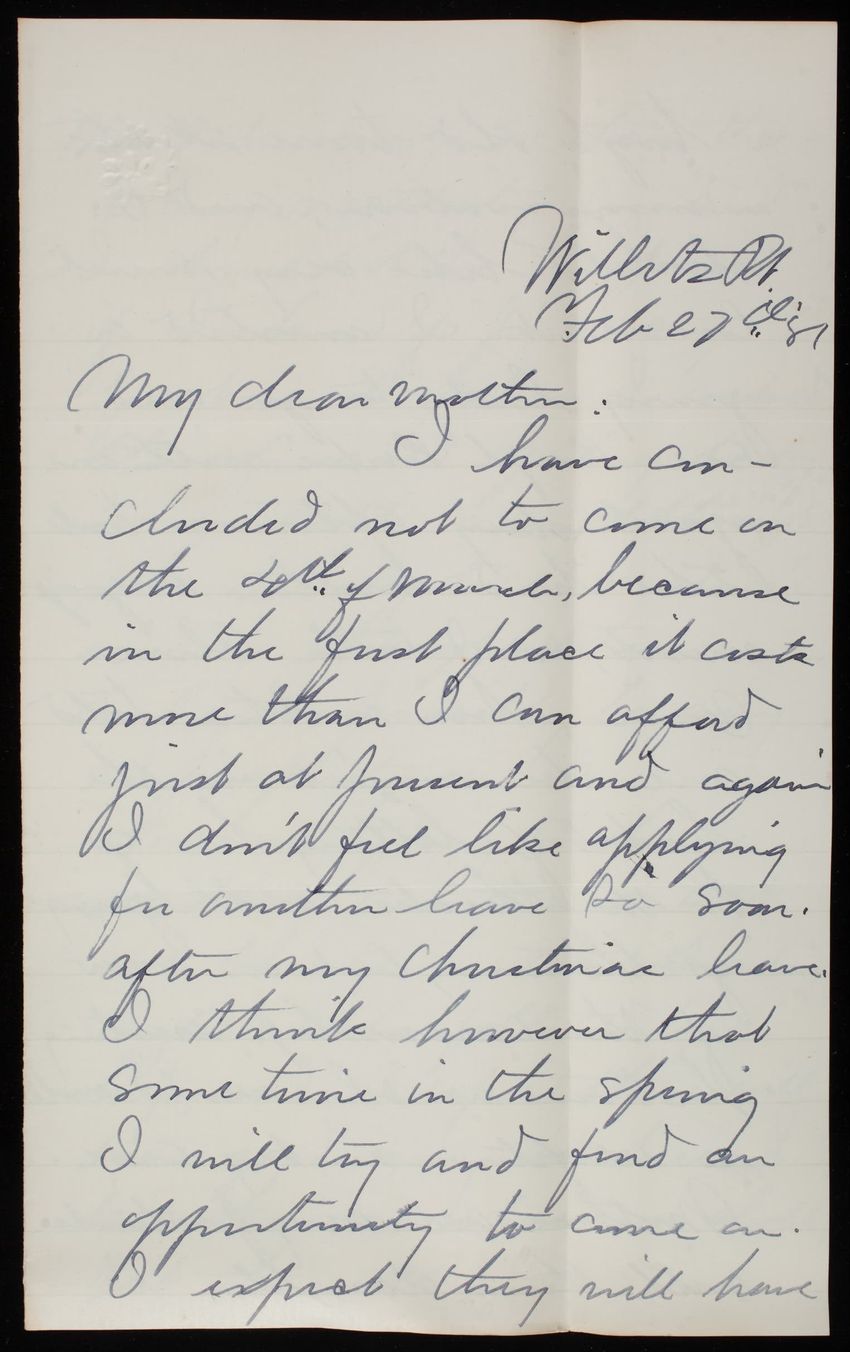 Willets Pt.
Feb 27th '81
My dear mother:
I have con-
cluded not to come on
the 4th of March, because
in the first place it costs
more than I can afford
just at present and again
I don't feel like applying
for another leave so soon.
after my Christmas leave.
I think however that
some time in the spring
I will try and find an
opportunity to come on.
I expect they will have